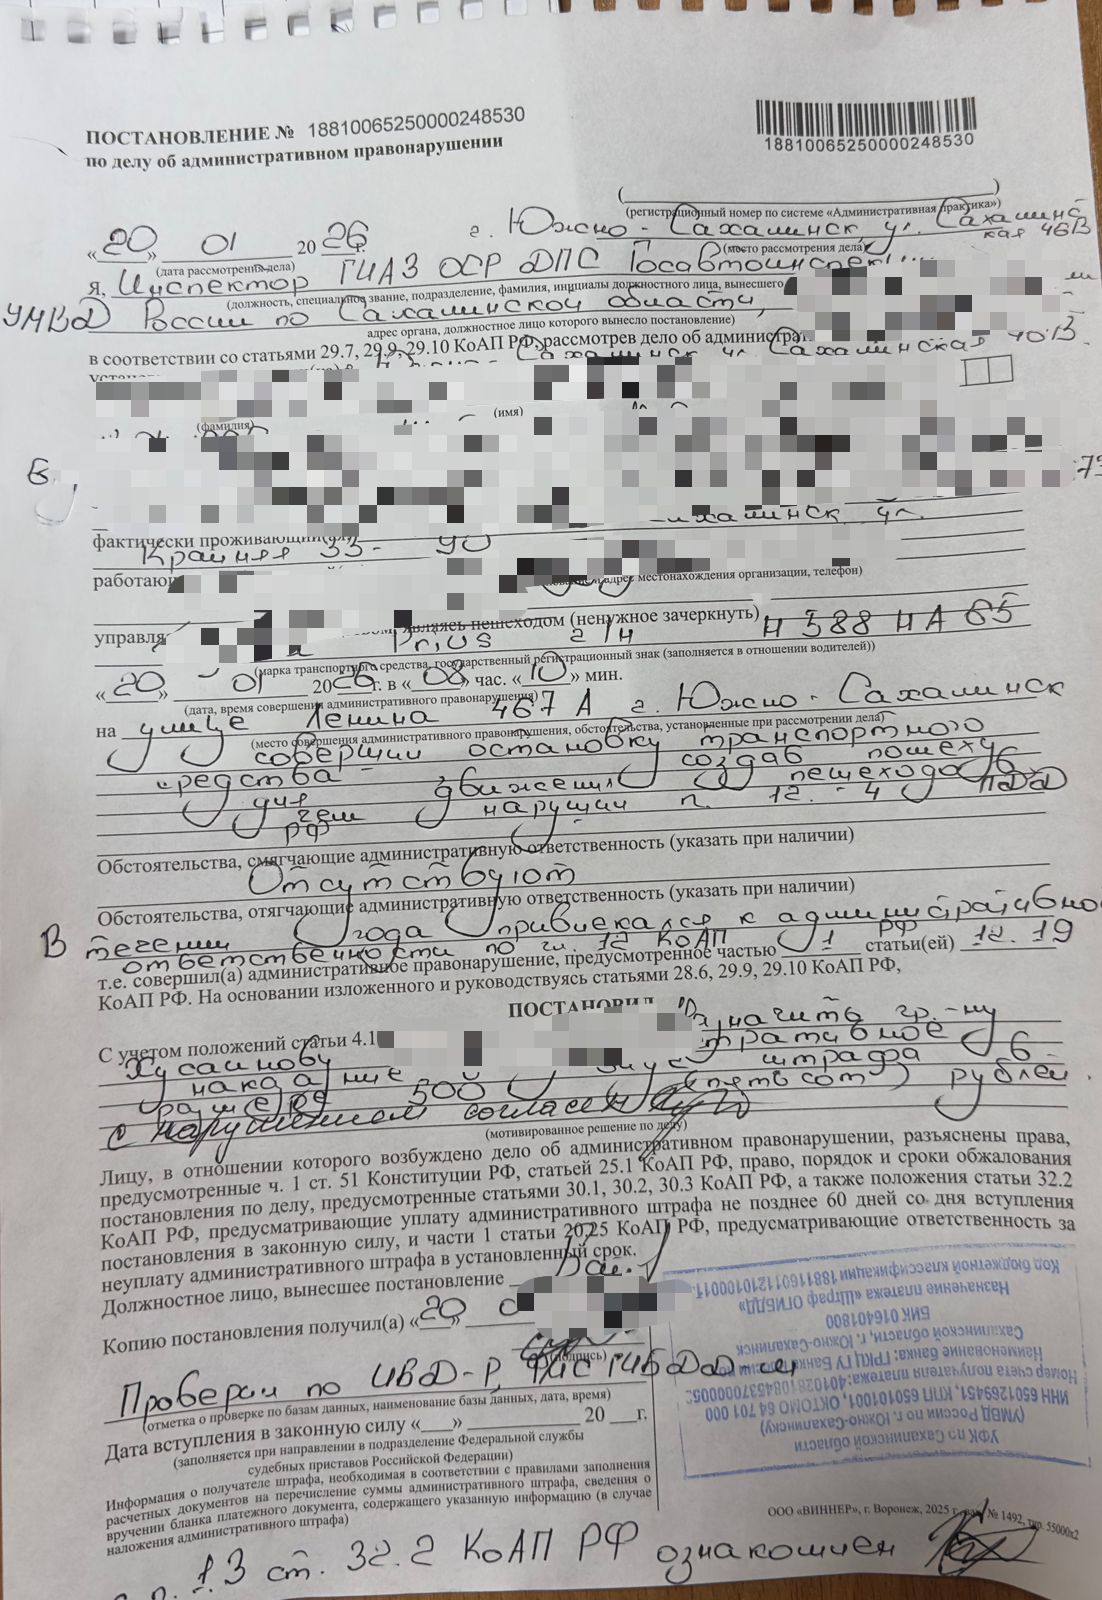 ПОСТАНОВЛЕНИЕ № 18810065250000248530
по делу об административном правонарушении
18810065250000248530
(регистрационный номер по системе «Административная практика»)
«20» 01 2026г. г. Южно-Сахалинск, ул. Сахалинс
кая 46В
(дата рассмотрения дела) (место рассмотрения дела)
я, Инспектор ГИАЗ ОСР ДПС Госавтоинспек
(должность, специальное звание, подразделение, фамилия, инициалы должностного лица, вынесшего
УМВД России по Сахалинской области,
адрес органа, должностное лицо которого вынесло постановление)
в соответствии со статьями 29.7, 29.9, 29.10 КоАП РФ, рассмотрев дело об администрат
Сахалинск ул. Сахалинская 40В.
(фамилия) (имя)
ул.
фактически проживающий
Крайняя 33-90
работаю адрес местонахождения организации, телефон)
управля являясь пешеходом (ненужное зачеркнуть)
Prius г/н Н 588 НА 65
(марка транспортного средства, государственный регистрационный знак (заполняется в отношении водителей))
«20» 01 2026г. в «08» час. «10» мин.
(дата, время совершения административного правонарушения)
на улице Ленина 467 А г. Южно-Сахалинск
(место совершения административного правонарушения, обстоятельства, установленные при рассмотрении дела)
совершил остановку транспортного
средства создав помеху
для движения пешеходов
чем нарушил п. 12.4 ПДД
РФ
Обстоятельства, смягчающие административную ответственность (указать при наличии)
Отсутствуют
Обстоятельства, отягчающие административную ответственность (указать при наличии)
В течении года привлекался к административно
ответственности по гл. 12 КоАП РФ
т.е. совершил(а) административное правонарушение, предусмотренное частью 1 статьи(ей) 12.19
КоАП РФ. На основании изложенного и руководствуясь статьями 28.6, 29.9, 29.10 КоАП РФ,
ПОСТАНОВИЛ
С учетом положений статьи 4.1 назначить гр.-ну
Хусаинову
наказание штрафа в
размере 500 (пятьсот) рублей.
с нарушением согласен
(мотивированное решение по делу)
Лицу, в отношении которого возбуждено дело об административном правонарушении, разъяснены права,
предусмотренные ч. 1 ст. 51 Конституции РФ, статьей 25.1 КоАП РФ, право, порядок и сроки обжалования
постановления по делу, предусмотренные статьями 30.1, 30.2, 30.3 КоАП РФ, а также положения статьи 32.2
КоАП РФ, предусматривающие уплату административного штрафа не позднее 60 дней со дня вступления
постановления в законную силу, и части 1 статьи 20.25 КоАП РФ, предусматривающие ответственность за
неуплату административного штрафа в установленный срок.
Должностное лицо, вынесшее постановление
Копию постановления получил(а) «20» 0
(подпись)
Проверен по ИБД-Р, ФИС ГИБДД-м
(отметка о проверке по базам данных, наименование базы данных, дата, время)
Дата вступления в законную силу «__» ________ 20 __г.
(заполняется при направлении в подразделение Федеральной службы
судебных приставов Российской Федерации)
Информация о получателе штрафа, необходимая в соответствии с правилами заполнения
расчетных документов на перечисление суммы административного штрафа, сведения о
вручении бланка платежного документа, содержащего указанную информацию (в случае
наложения административного штрафа)
УФК по Сахалинской области
(УМВД России по г. Южно-Сахалинску)
ИНН 6501269451, КПП 650101001, ОКТМО 64 701 000
Номер счета получателя платежа:
Наименование банка: ГРКЦ ГУ Банка
Сахалинской области, г. Южно-Сахалинск
БИК 016401800
Назначение платежа «Штраф ОГИБДД»
Код бюджетной классификации 18811601121010001
ООО «ВИННЕР», г. Воронеж, 2025 г., зак. № 1492, тир. 55000х2
1.3 ст. 32.2 КоАП РФ ознакомлен